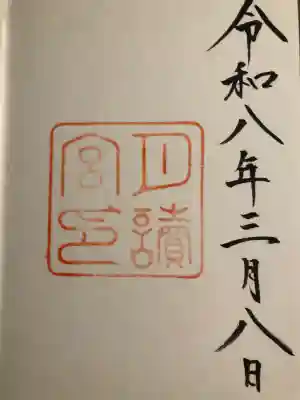 令和八年三月八日
月讀
宮印